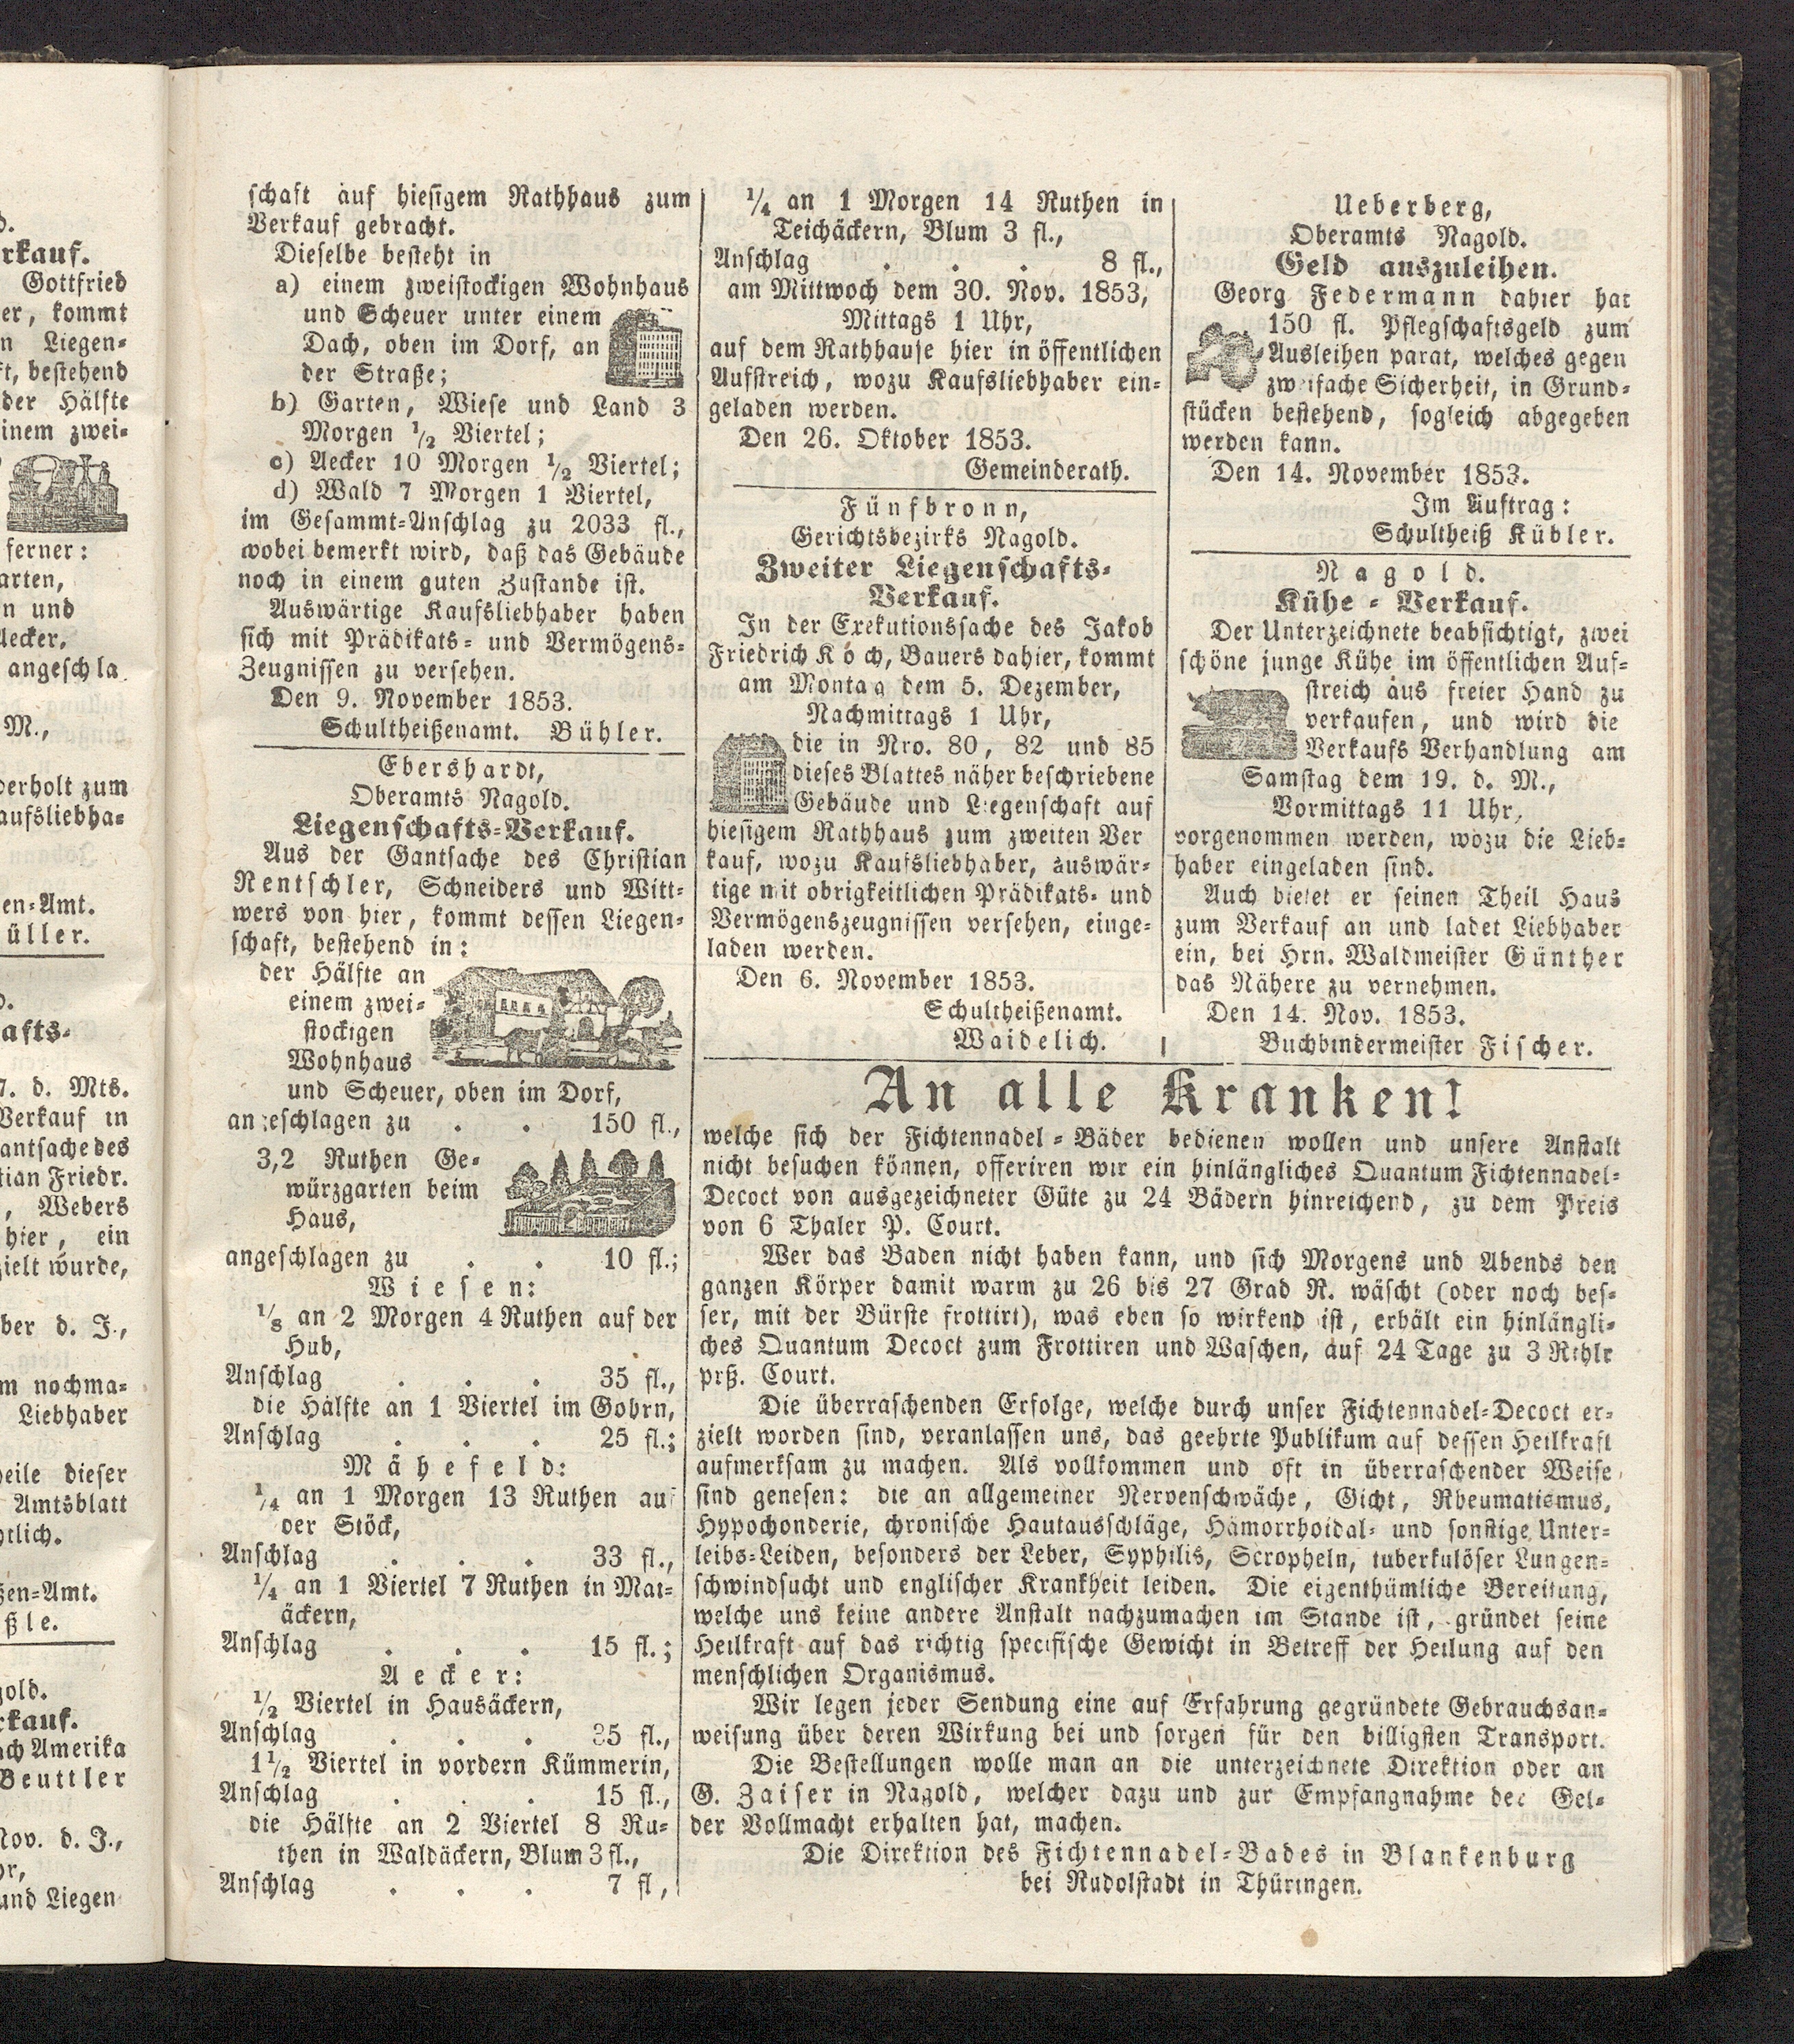 schaft auf hiesigem Rathhaus zum
Verkauf gebracht.
Dieselbe besteht in
a) einem zweistockigen Wohnhaus
und Scheuer unter einem
Dach, oben im Dorf, an
der Straße;
b) Garten, Wiese und Land 3
Morgen ½ Viertel;
c) Aecker 10 Morgen ½ Viertel;
d) Wald 7 Morgen 1 Viertel,
im Gesammt-Anschlag zu 2033 fl.,
wobei bemerkt wird, daß das Gebäude
noch in einem guten Zustande ist.
Auswärtige Kaufsliebhaber haben
sich mit Prädikats- und Vermögens-
Zeugnissen zu versehen.
Den 9. November 1853.
Schultheißenamt. Bühler.
Ebershardt,
Oberamts Nagold.
Liegenschafts-Verkauf.
Aus der Gantsache des Christian
Rentschler, Schneiders und Witt-
wers von hier, kommt dessen Liegen-
schaft, bestehend in:
der Hälfte an
einem zwei-
stockigen
Wohnhaus
und Scheuer, oben im Dorf,
angeschlagen zu . . 150 fl.,
3,2 Ruthen Ge-
würzgarten beim
Haus,
angeschlagen zu . . 10 fl.;
Wiesen:
⅛ an 2 Morgen 4 Ruthen auf der
Hub,
Anschlag . . . 35 fl.,
die Hälfte an 1 Viertel im Gohrn,
Anschlag . . . 25 fl.;
Mähefeld:
¼ an 1 Morgen 13 Ruthen auf
der Stöck,
Anschlag . . . 33 fl.,
¼ an 1 Viertel 7 Ruthen in Mat-
äckern,
Anschlag . . . 15 fl.;
Aecker:
½ Viertel in Hausäckern,
Anschlag . . . 35 fl.,
1½ Viertel in vordern Kümmerin,
Anschlag . . . 15 fl.,
die Hälfte an 2 Viertel 8 Ru-
then in Waldäckern, Blum 3 fl.,
Anschlag . . . 7 fl,
¼ an 1 Morgen 14 Ruthen in
Teichäckern, Blum 3 fl.,
Anschlag . . . 8 fl.,
am Mittwoch dem 30. Nov. 1853,
Mittags 1 Uhr,
auf dem Rathhause hier in öffentlichen
Aufstreich, wozu Kaufsliebhaber ein-
geladen werden.
Den 26. Oktober 1853.
Gemeinderath.
Fünfbronn,
Gerichtsbezirks Nagold.
Zweiter Liegenschafts-
Verkauf.
In der Exekutionssache des Jakob
Friedrich Koch, Bauers dahier, kommt
am Montag dem 5. Dezember,
Nachmittags 1 Uhr,
die in Nro. 80, 82 und 85
dieses Blattes näher beschriebene
Gebäude und Liegenschaft auf
hiesigem Rathhaus zum zweiten Ver
kauf, wozu Kaufsliebhaber, auswär-
tige mit obrigkeitlichen Prädikats- und
Vermögenszeugnissen versehen, einge-
laden werden.
Den 6. November 1853.
Schultheißenamt.
Waidelich.
Ueberberg,
Oberamts Nagold.
Geld auszuleihen.
Georg Federmann dahier hat
150 fl. Pflegschaftsgeld zum
Ausleihen parat, welches gegen
zweifache Sicherheit, in Grund-
stücken bestehend, sogleich abgegeben
werden kann.
Den 14. November 1853.
Im Auftrag:
Schultheiß Kübler.
Nagold.
Kühe - Verkauf.
Der Unterzeichnete beabsichtigt, zwei
schöne junge Kühe im öffentlichen Auf-
streich aus freier Hand zu
verkaufen, und wird die
Verkaufs Verhandlung am
Samstag dem 19. d. M.,
Vormittags 11 Uhr,
vorgenommen werden, wozu die Lieb-
haber eingeladen sind.
Auch bietet er seinen Theil Haus
zum Verkauf an und ladet Liebhaber
ein, bei Hrn. Waldmeister Günther
das Nähere zu vernehmen.
Den 14. Nov. 1853.
Buchbindermeister Fischer.
An alle Kranken!
welche sich der Fichtennadel-Bäder bedienen wollen und unsere Anstalt
nicht besuchen können, offeriren wir ein hinlängliches Quantum Fichtennadel-
Decoct von ausgezeichneter Güte zu 24 Bädern hinreichend, zu dem Preis
von 6 Thaler P. Court.
Wer das Baden nicht haben kann, und sich Morgens und Abends den
ganzen Körper damit warm zu 26 bis 27 Grad R. wäscht (oder noch bes-
ser, mit der Bürste frottirt), was eben so wirkend ist, erhält ein hinlängli-
ches Quantum Decoct zum Frottiren und Waschen, auf 24 Tage zu 3 Rthlr
prß. Court.
Die überraschenden Erfolge, welche durch unser Fichtennadel-Decoct er-
zielt worden sind, veranlassen uns, das geehrte Publikum auf dessen Heilkraft
aufmerksam zu machen. Als vollkommen und oft in überraschender Weise
sind genesen: die an allgemeiner Nervenschwäche, Gicht, Rheumatismus,
Hypochonderie, chronische Hautausschläge, Hämorrhoidal- und sonstige Unter-
leibs-Leiden, besonders der Leber, Syphilis, Scropheln, tuberkulöser Lungen-
schwindsucht und englischer Krankheit leiden. Die eigenthümliche Bereitung,
welche uns keine andere Anstalt nachzumachen im Stande ist, gründet seine
Heilkraft auf das richtig specifische Gewicht in Betreff der Heilung auf den
menschlichen Organismus.
Wir legen jeder Sendung eine auf Erfahrung gegründete Gebrauchsan-
weisung über deren Wirkung bei und sorgen für den billigsten Transport.
Die Bestellungen wolle man an die unterzeichnete Direktion oder an
G. Zaiser in Nagold, welcher dazu und zur Empfangnahme der Gel-
der Vollmacht erhalten hat, machen.
Die Direktion des Fichtennadel-Bades in Blankenburg
bei Rudolstadt in Thüringen.